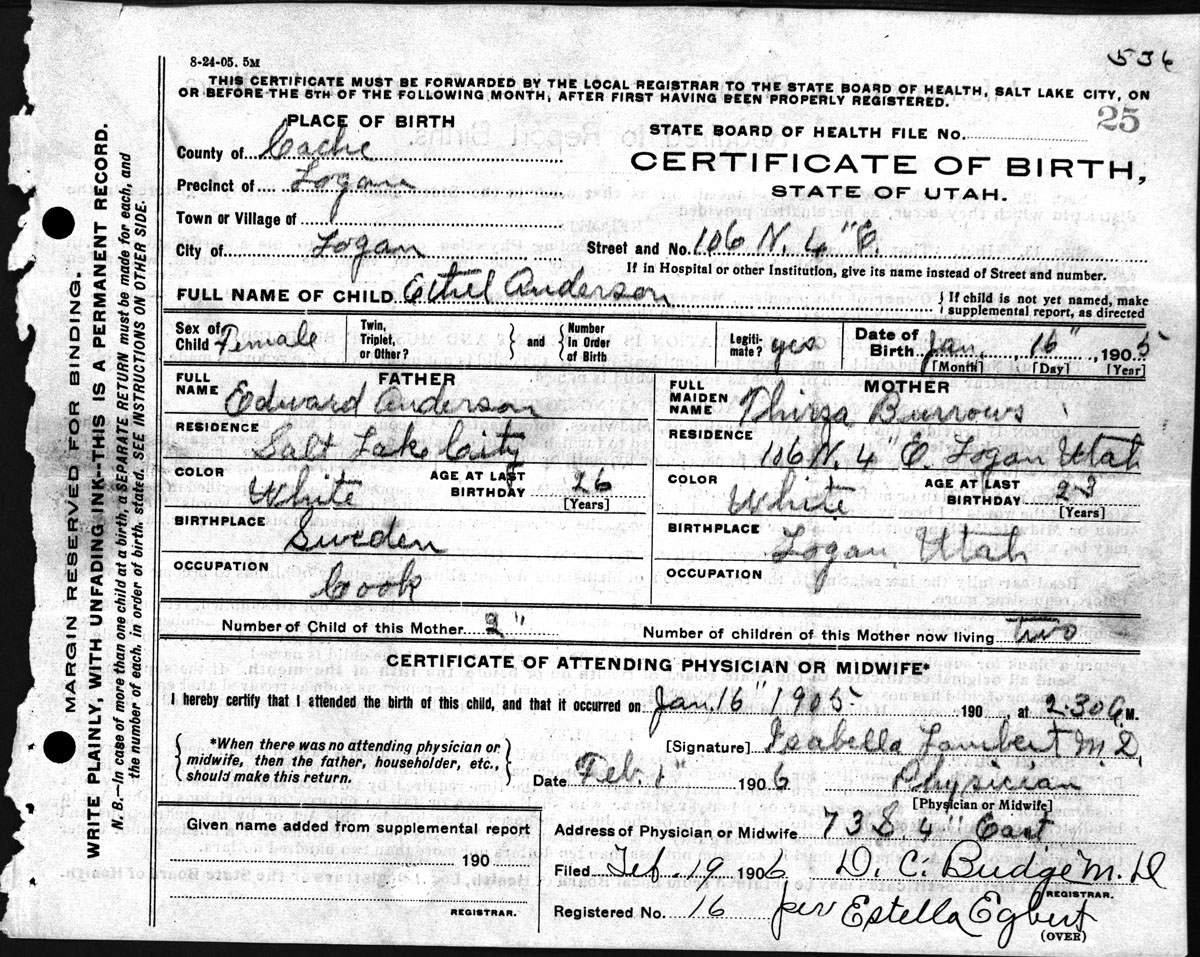 536
8-24-05. 5M
THIS CERTIFICATE MUST BE FORWARDED BY THE LOCAL REGISTRAR TO THE STATE BOARD OF HEALTH, SALT LAKE CITY, ON
OR BEFORE THE 5TH OF THE FOLLOWING MONTH, AFTER FIRST HAVING BEEN PROPERLY REGISTERED.
25
PLACE OF BIRTH
STATE BOARD OF HEALTH FILE No.
County of Cache
CERTIFICATE OF BIRTH,
Precinct of Logan
STATE OF UTAH.
Town or Village of
City of Logan
Street and No. 106 N. 4" E.
If in Hospital or other Institution, give its name instead of Street and number.
FULL NAME OF CHILD Ethel Anderson
{ If child is not yet named, make
supplemental report, as directed
Sex of Child Female
Twin, Triplet, or Other?
} and {
Number in Order of Birth
Legitimate? yes
Date of Birth Jan. 16" 1905
[Month] [Day] [Year]
FATHER
FULL NAME Edward Anderson
RESIDENCE
Salt Lake City
COLOR White
AGE AT LAST BIRTHDAY 26
[Years]
BIRTHPLACE
Sweden
OCCUPATION
Cook
MOTHER
FULL MAIDEN NAME Thirza Burrows
RESIDENCE
106 N. 4" E. Logan Utah
COLOR White
AGE AT LAST BIRTHDAY 23
[Years]
BIRTHPLACE
Logan Utah
OCCUPATION
Number of Child of this Mother 2"
Number of children of this Mother now living two
CERTIFICATE OF ATTENDING PHYSICIAN OR MIDWIFE*
I hereby certify that I attended the birth of this child, and that it occurred on Jan. 16" 1905 190 , at 2:30 a M.
{ *When there was no attending physician or
midwife, then the father, householder, etc.,
should make this return. }
[Signature] Isabella Lambert M.D.
Date Feb. 1" 1906
Physician
[Physician or Midwife]
Given name added from supplemental report
190
REGISTRAR.
Address of Physician or Midwife 73 S. 4" East
Filed Feb. 19 1906
D. C. Budge M.D
REGISTRAR.
Registered No. 16
per Estella Egbert
(OVER)
MARGIN RESERVED FOR BINDING.
WRITE PLAINLY, WITH UNFADING INK--THIS IS A PERMANENT RECORD.
N. B.—In case of more than one child at a birth, a SEPARATE RETURN must be made for each, and
the number of each, in order of birth, stated. SEE INSTRUCTIONS ON OTHER SIDE.